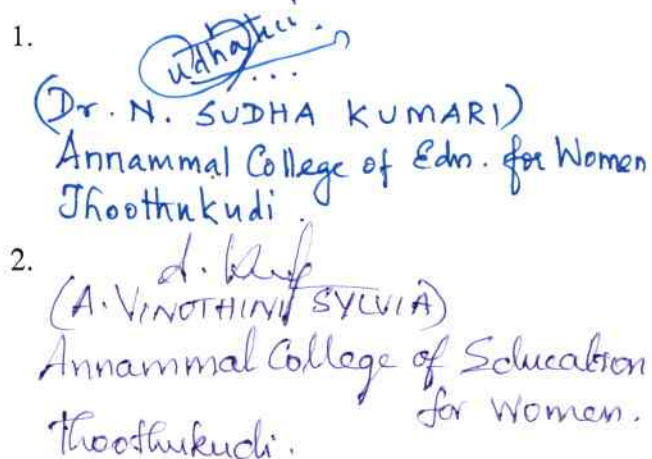 1.
(Dr. N. SUDHA KUMARI)
Annammal College of Edn. for Women
Thoothukudi.
2.
(A. VINOTHINI SYLVIA)
Annammal College of Education
for Women.
Thoothukudi.